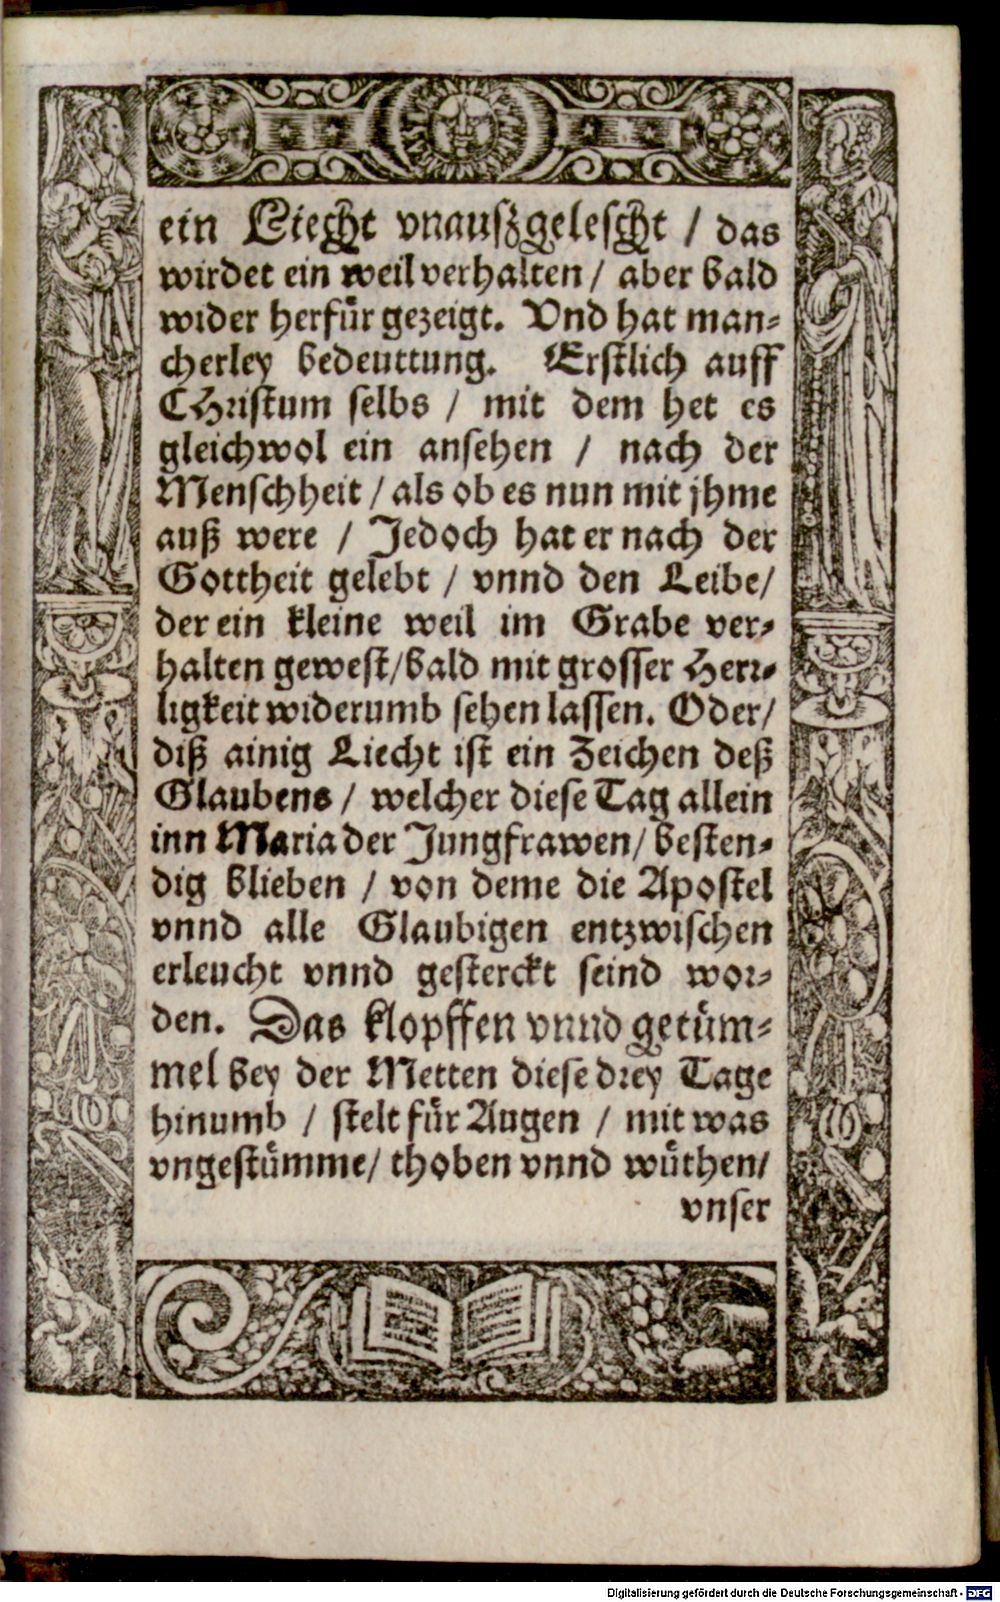 ein Liecht vnauszgelescht / das
wirdet ein weil verhalten / aber bald
wider herfür gezeigt. Vnd hat man-
cherley bedeuttung. Erstlich auff
CHristum selbs / mit dem het es
gleichwol ein ansehen / nach der
Menschheit / als ob es nun mit jhme
auß were / Jedoch hat er nach der
Gottheit gelebt / vnnd den Leibe /
der ein kleine weil im Grabe ver-
halten gewest / bald mit grosser Herr-
ligkeit widerumb sehen lassen. Oder /
diß ainig Liecht ist ein Zeichen deß
Glaubens / welcher diese Tag allein
inn Maria der Jungfrawen / besten-
dig blieben / von deme die Apostel
vnnd alle Glaubigen entzwischen
erleucht vnnd gesterckt seind wor-
den. Das klopffen vnnd getüm-
mel bey der Metten diese drey Tage
hinumb / stelt für Augen / mit was
vngestümme / thoben vnnd wüthen /
vnser
Digitalisierung gefördert durch die Deutsche Forschungsgemeinschaft - DFG